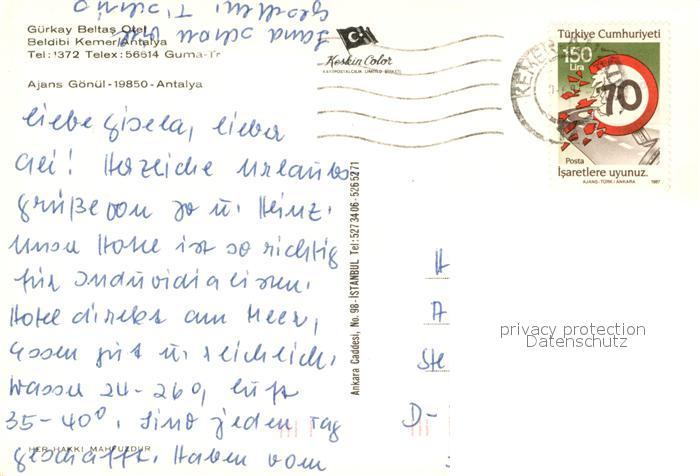 Gürkay Beltaş Otel
Beldibi Kemer/Antalya
Tel: 1372 Telex: 56614 Guma-Tr
Ajans Gönül - 19850 - Antalya
Keskin Color
KARTPOSTALCILIK LIMITED ŞİRKETİ
KEMER
Türkiye Cumhuriyeti
150
Lira
70
Posta
İşaretlere uyunuz.
AJANS-TÜRK/ANKARA 1987
liebe Gisela, lieber
Aei! Herzliche Urlaubs
grüße von Jo u. Heinz.
Unser Hotel ist so richtig
für Induvidialisten.
Hotel direkt am Meer,
Essen gut u. reichlich.
Wasser 24-26°, luft
35-40°. Sind jeden Tag
geschafft. Haben vom
Land schon
HER HAKKI MAHFUZDUR
Ankara Caddesi, No. 98-İSTANBUL Tel: 527 34 06-526 52 71
H
A
Ste
D-
privacy protection
Datenschutz